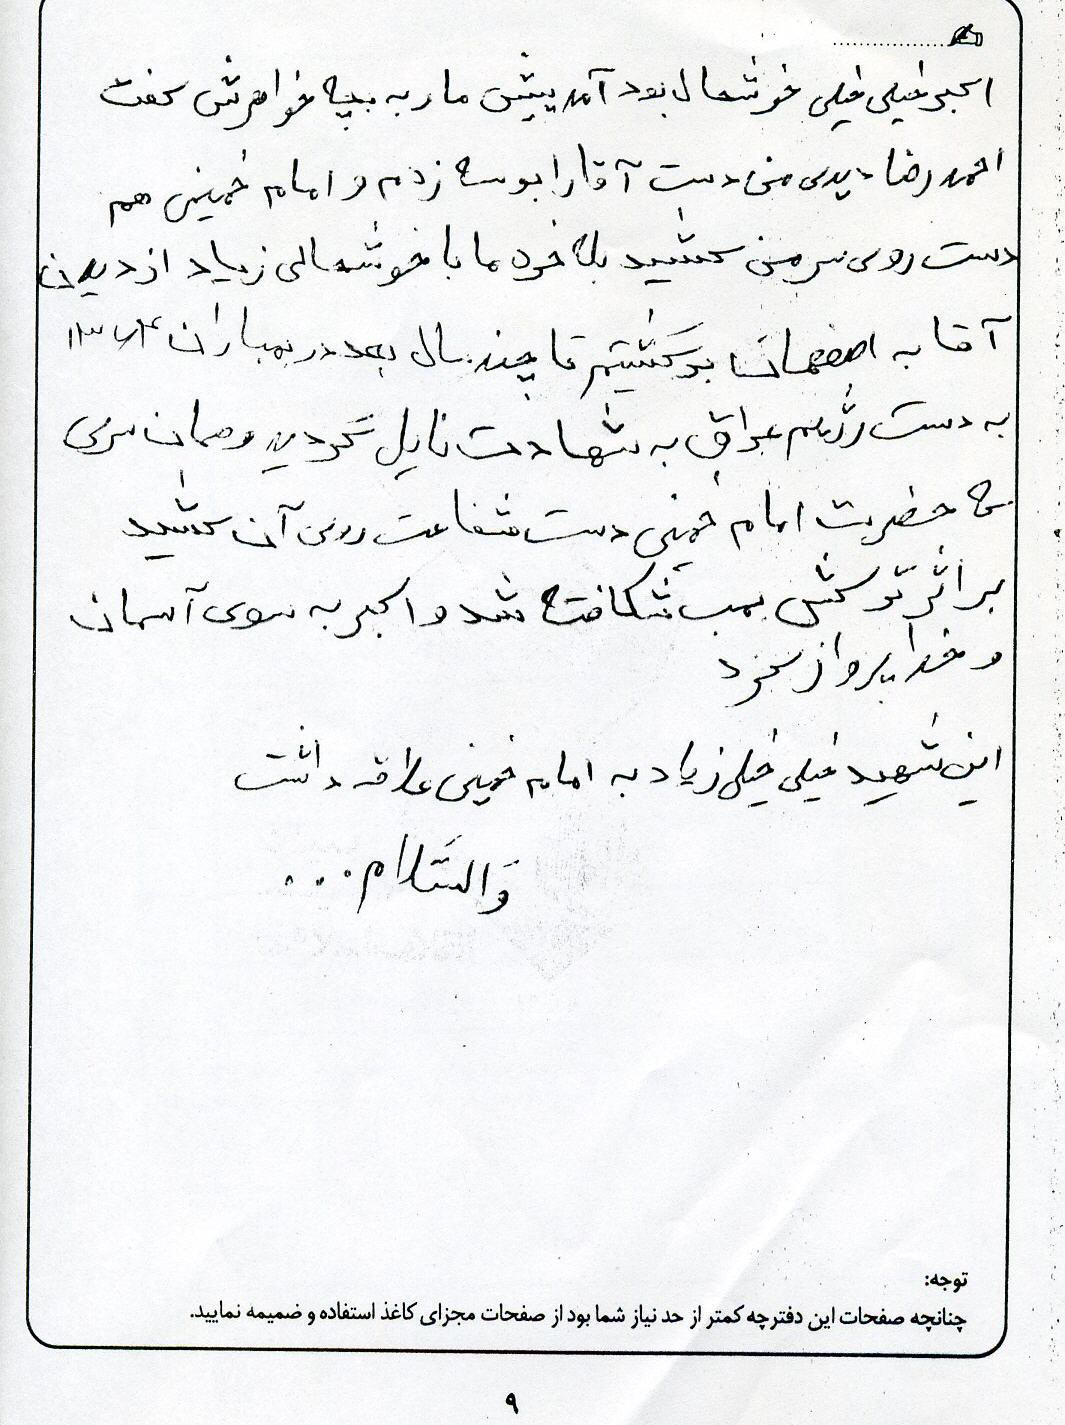 اکبر خیلی خیلی خوشحال بود آمد پیش ما رو به بچه خواهرش گفت
احمد رضا دیدی من دست آقا را بوسه زدم و امام خمینی هم
دست روی سر من کشید بلاخره ما با خوشحالی زیاد از دیدن
آقا به اصفهان برگشتیم تا چند سال بعد در بمباران
به دست رژیم عراق به شهادت نایل گردید و همان سری
که حضرت امام خمینی دست شفاعت روی آن کشید
بر اثر ترکش بمب شکافته شد و اکبر به سوی آسمان
و خدا پرواز کرد
این شهید خیلی خیلی زیاد به امام خمینی علاقه داشت
والسّلام ...
توجه:
چنانچه صفحات این دفترچه کمتر از حد نیاز شما بود از صفحات مجزای کاغذ استفاده و ضمیمه نمایید.
۹